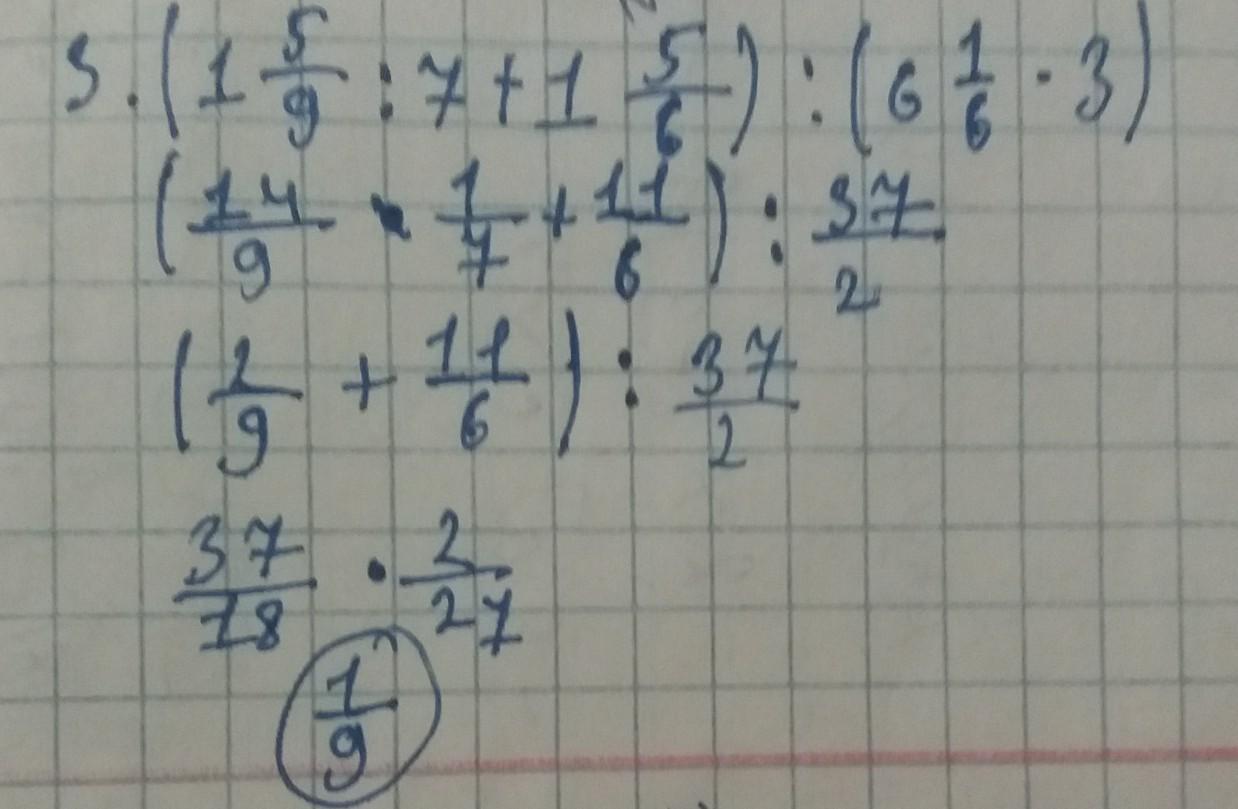 3. (1 5/9 : 7 + 1 5/6) : (6 1/6 · 3)
(14/9 · 1/7 + 11/6) : 37/2
(2/9 + 11/6) : 37/2
37/18 · 2/27
1/9